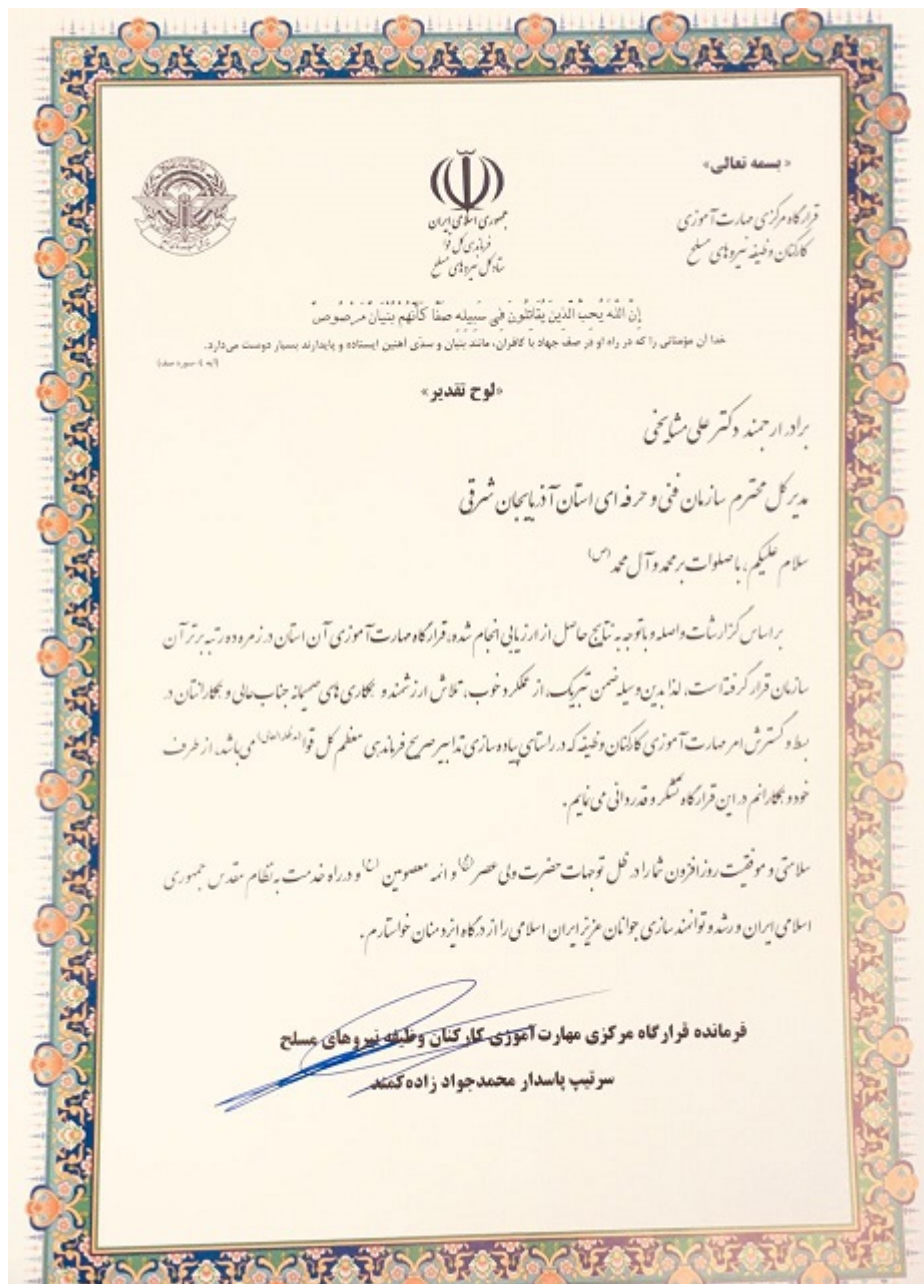 « بسمه تعالی»
قرارگاه مرکزی مهارت آموزی
کارکنان وظیفه نیروهای مسلح
جمهوری اسلامی ایران
فرماندهی کل قوا
ستاد کل نیروهای مسلح
إنّ اللهَ یُحِبُّ الَّذینَ یُقاتِلُونَ فی سَبیلِه صَفّا کَأَنَّهُم بُنیانٌ مَرصُوصٌ
خدا آن مؤمنانی را که در راه او در صف جهاد با کافران، مانند بنیان و سدّی آهنین ایستاده و پایدارند بسیار دوست می‌دارد.
(آیه ۴ سوره صف)
«لوح تقدیر»
برادر ارجمند دکتر علی مشایخی
مدیر کل محترم سازمان فنی و حرفه ای استان آذربایجان شرقی
سلام علیکم، با صلوات بر محمد و آل محمد (ص)
بر اساس گزارشات واصله و باتوجه به نتایج حاصل از ارزیابی انجام شده، قرارگاه مهارت آموزی آن استان در زمره ده رتبه برتر آن
سازمان قرار گرفته است، لذا بدین وسیله ضمن تبریک، از عملکرد خوب، تلاش ارزشمند و همکاری های صمیمانه جناب عالی و همکارانتان در
بسط و گسترش امر مهارت آموزی کارکنان وظیفه که در راستای پیاده سازی تدابیر صریح فرماندهی معظم کل قوا (مدظله العالی) می باشد، از طرف
خود و همکارانم در این قرارگاه تشکر و قدردانی می نمایم.
سلامتی و موفقیت روز افزون شما را در ظل توجهات حضرت ولی عصر (عج) و ائمه معصومین (ع) و در راه خدمت به نظام مقدس جمهوری
اسلامی ایران و رشد و توانمند سازی جوانان عزیز ایران اسلامی را از درگاه ایزد منان خواستارم.
فرمانده قرارگاه مرکزی مهارت آموزی کارکنان وظیفه نیروهای مسلح
سرتیپ پاسدار محمدجواد زاده‌کمند